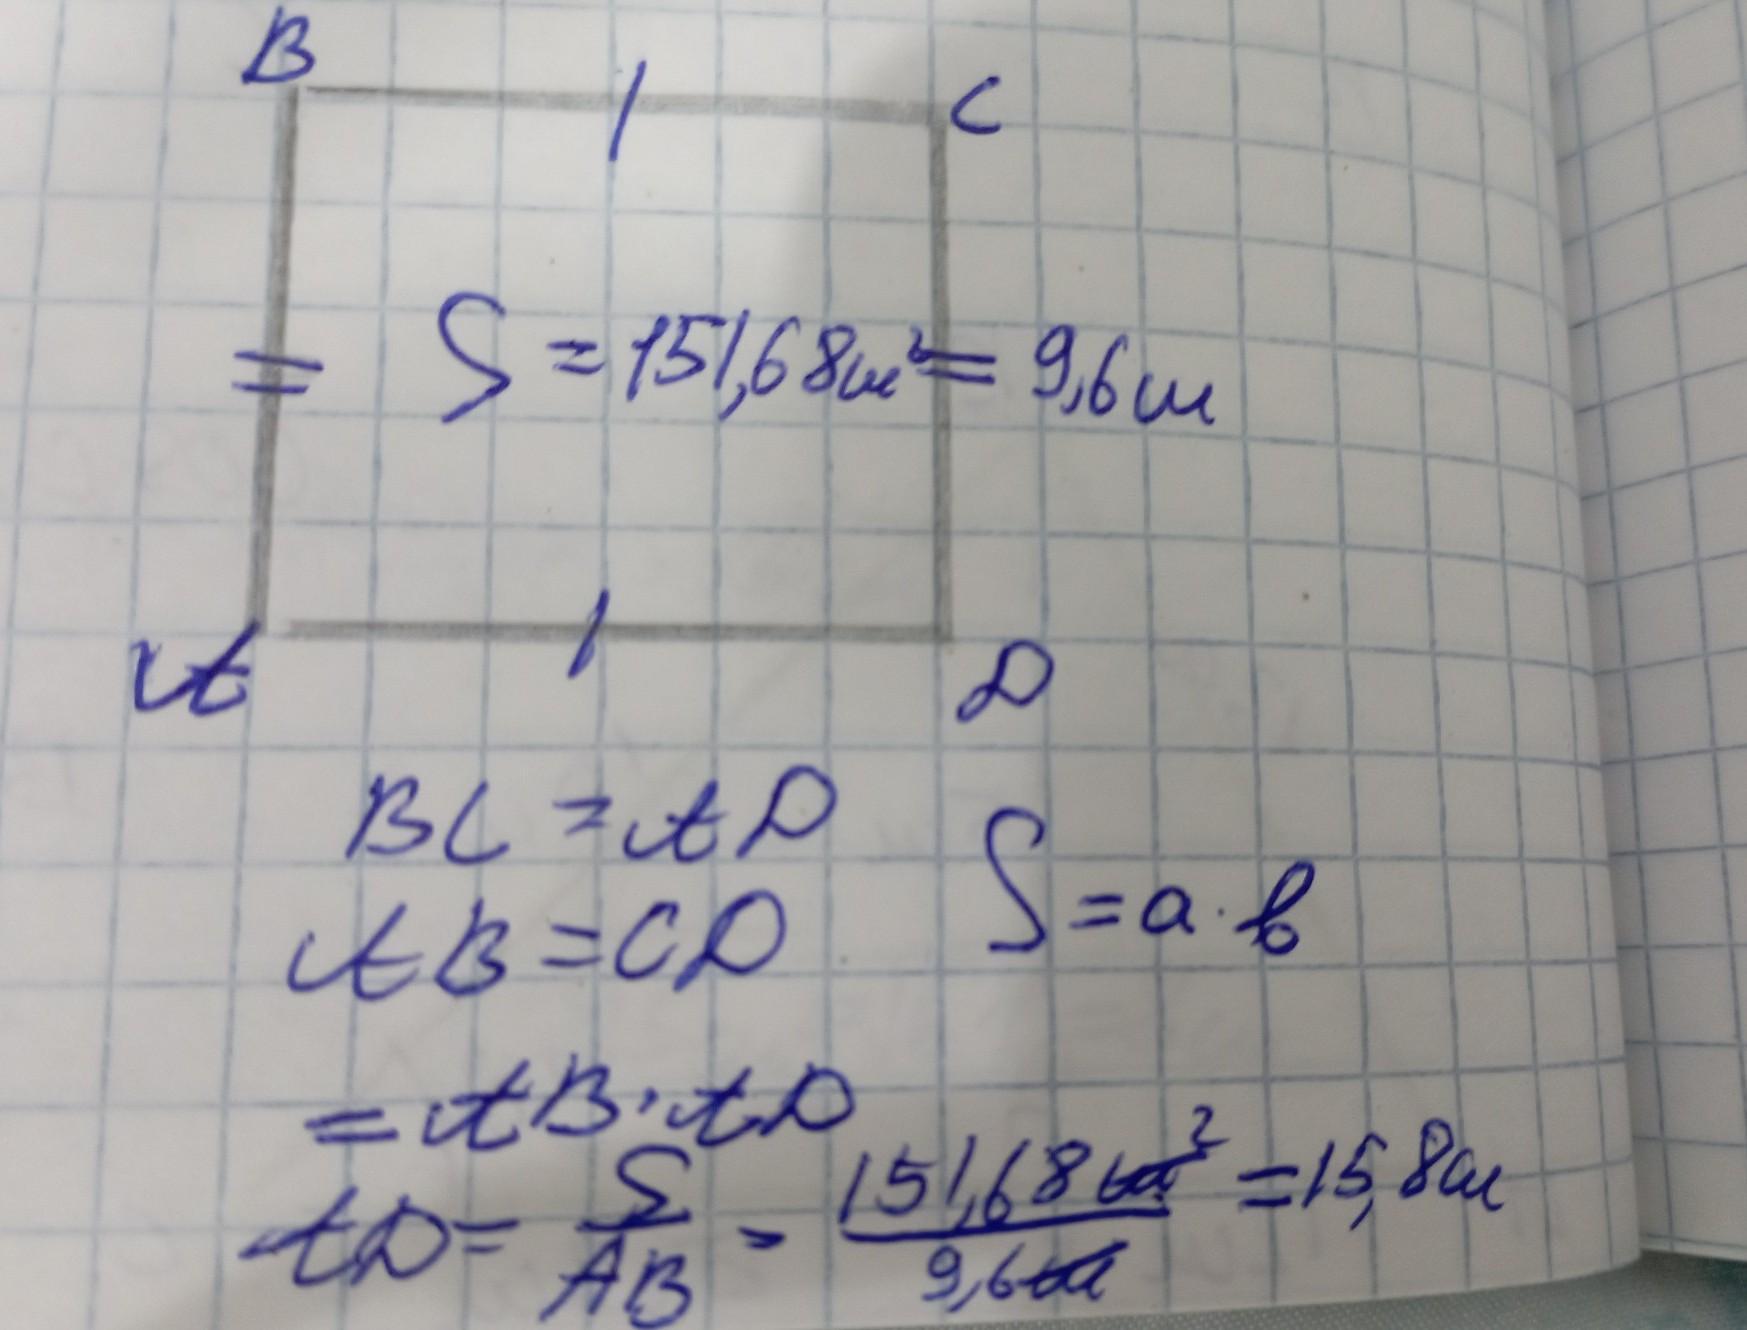 B
C
S = 151,68 м² = 9,6 м
A
D
BC = AD
AB = CD
S = a · b
= AB · AD
AD = S/AB = 151,68 м²/9,6 м = 15,8 м